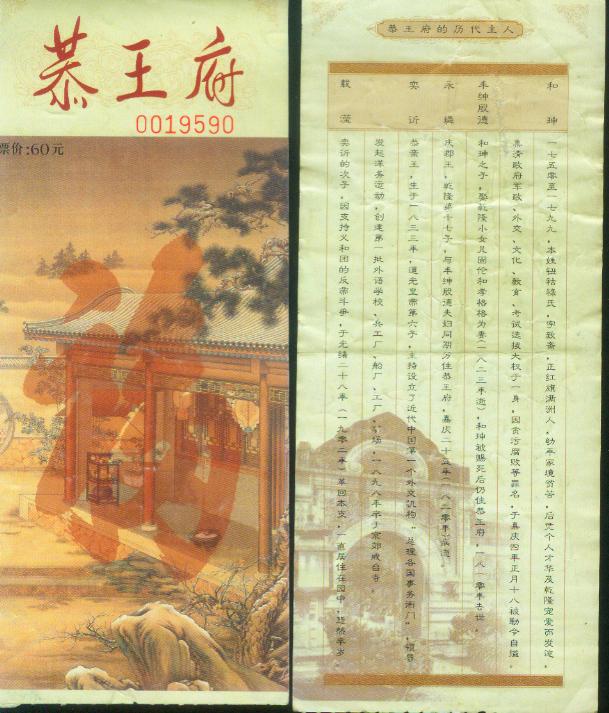 恭王府
0019590
票价:60元
福
恭王府的历代主人
和珅
一七五零至一七九九，本姓钮祜禄氏，字致斋，正红旗满洲人，幼年家境贫苦，后凭个人才华及乾隆宠爱而发迹，
集清政府军政、外交、文化、教育、考试选拔大权于一身，因贪污腐败等罪名，于嘉庆四年正月十八被勒令自缢。
丰绅殷德
和珅之子，娶乾隆小女儿固伦和孝格格为妻(一八二三年逝)，和珅被赐死后仍住恭王府，一八一零年去世。
永璘
庆郡王，乾隆第十七子，与丰绅殷德夫妇同期居住恭王府，嘉庆二十五年(一八二零年)病逝。
奕訢
恭亲王，生于一八三三年，道光皇帝第六子，主持设立了近代中国第一个外交机构“总理各国事务衙门”，领导
发起洋务运动，创建第一批外语学校、兵工厂、船厂、工厂、矿场，一八九八年卒于京郊戒台寺。
载滢
奕訢的次子，因支持义和团的反帝斗争，于光绪二十八年(一九零二年)革回本支，一直居住在园中，